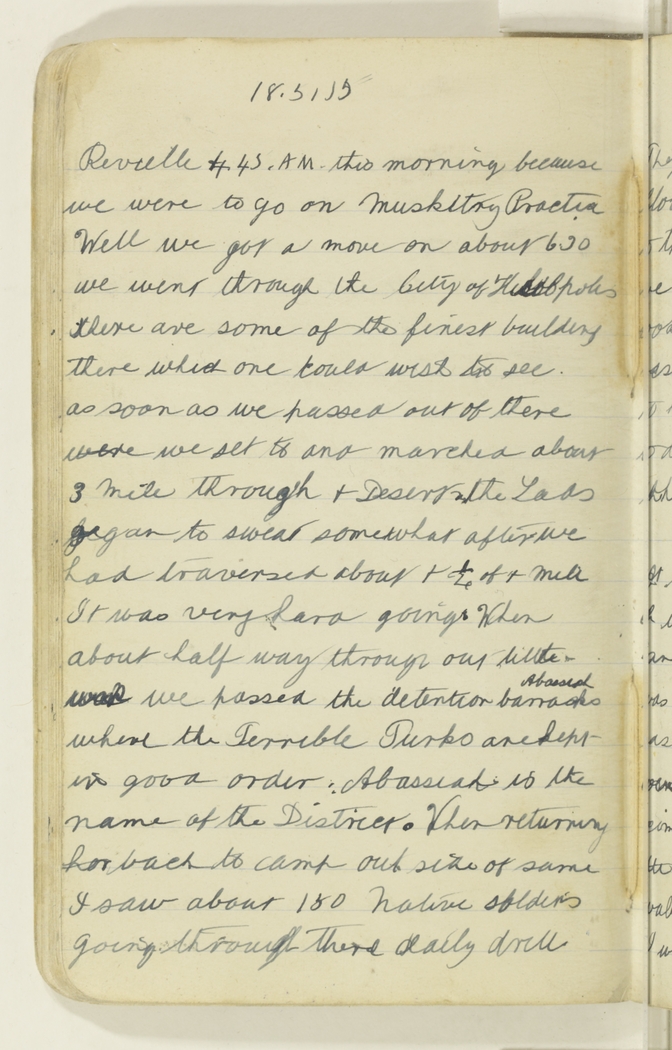 18.3.15
Revielle 4.45. A.M. this morning because
we were to go on Muskltry Practice
Well we got a move on about 6 30
we went through the City of Heliopolis
there are some of the finest building
there which one could wish to see.
as soon as we passed out of there
were we set to and marched about
3 mile through + Desert. the Lads
began to sweat somewhat after we
had traversed about + ½ of + mile
It was very hard going. When
about half way through our little
walk we passed the detention barracks
Abassiah
where the Terrible Turks are kept
in good order. Abassiah is the
name of the District. When returning
back to camp out side of same
I saw about 150 Native soldiers
going through there daily drill